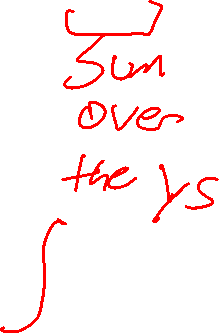 Sum
over
the ys
∫